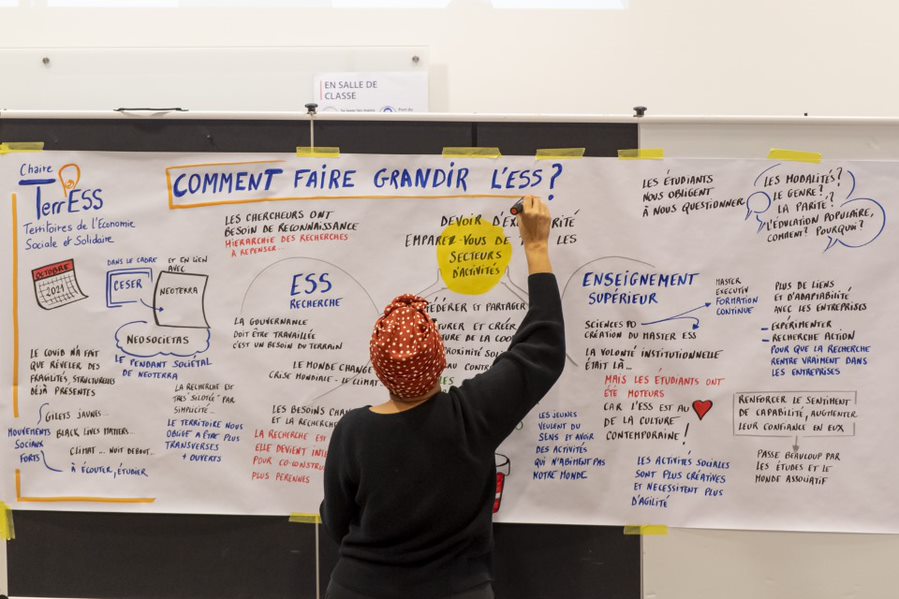 EN SALLE DE
CLASSE
Chaire
TerrESS
Territoires de l'Economie
Sociale et Solidaire
COMMENT FAIRE GRANDIR L'ESS?
OCTOBRE
2021
DANS LE CADRE
ET EN LIEN
AVEC
CESER
NEOTERRA
NEOSOCIETAS
LE PENDANT SOCIÉTAL
DE NEOTERRA
LE COVID N'A FAIT
QUE RÉVÉLER DES
FRAGILITÉS STRUCTURELLES
DÉJÀ PRÉSENTES
GILETS JAUNES...
MOUVEMENTS
SOCIAUX
FORTS
BLACK LIVES MATTERS...
CLIMAT ... NUIT DEBOUT...
À ÉCOUTER, ÉTUDIER
LA RECHERCHE EST
TRÈS "SILOTÉE" PAR
SIMPLICITÉ...
LE TERRITOIRE NOUS
OBLIGE A ÊTRE PLUS
TRANSVERSES
+ OUVERTS
LES CHERCHEURS ONT
BESOIN DE RECONNAISSANCE
HIERARCHIE DES RECHERCHES
A REPENSER...
ESS
RECHERCHE
LA GOUVERNANCE
DOIT ÊTRE TRAVAILLÉE
C'EST UN BESOIN DU TERRAIN
LE MONDE CHANGE
CRISE MONDIALE - LE CLIMAT
LES BESOINS
ET LA RECHERCHE
LA RECHERCHE
ELLE DEVIENT
POUR CO-CONSTRU
PLUS PERENNES
DEVOIR D'EX
EMPAREZ-VOUS DE
LES
SECTEURS
D'ACTIVITÉS
FÉDÉRER ET PARTAGER
ET CRÉER
DE LA
LES JEUNES
VEULENT DU
SENS ET AVOIR
DES ACTIVITÉS
QUI N'ABIMENT PAS
NOTRE MONDE
ENSEIGNEMENT
SUPÉRIEUR
SCIENCES PO
CRÉATION DU MASTER ESS
MASTER
EXECUTIV
FORMATION
CONTINUE
LA VOLONTÉ INSTITUTIONNELLE
ÉTAIT LÀ...
MAIS LES ÉTUDIANTS ONT
ÉTÉ MOTEURS
CAR L'ESS EST AU
DE LA CULTURE
CONTEMPORAINE !
LES ACTIVITÉS SOCIALES
SONT PLUS CRÉATIVES
ET NECESSITENT PLUS
D'AGILITÉ
LES ÉTUDIANTS
NOUS OBLIGENT
À NOUS QUESTIONNER
LES MODALITÉS?
LE GENRE?
LA PARITÉ?
L'ÉDUCATION POPULAIRE,
COMMENT? POURQUOI?
PLUS DE LIENS
ET D'ADAPTABILITÉ
AVEC LES ENTREPRISES
- EXPÉRIMENTER
- RECHERCHE ACTION
POUR QUE LA RECHERCHE
RENTRE VRAIMENT DANS
LES ENTREPRISES
RENFORCER LE SENTIMENT
DE CAPABILITÉ, AUGMENTER
LEUR CONFIANCE EN EUX
PASSE BEAUCOUP PAR
LES ÉTUDES ET LE
MONDE ASSOCIATIF